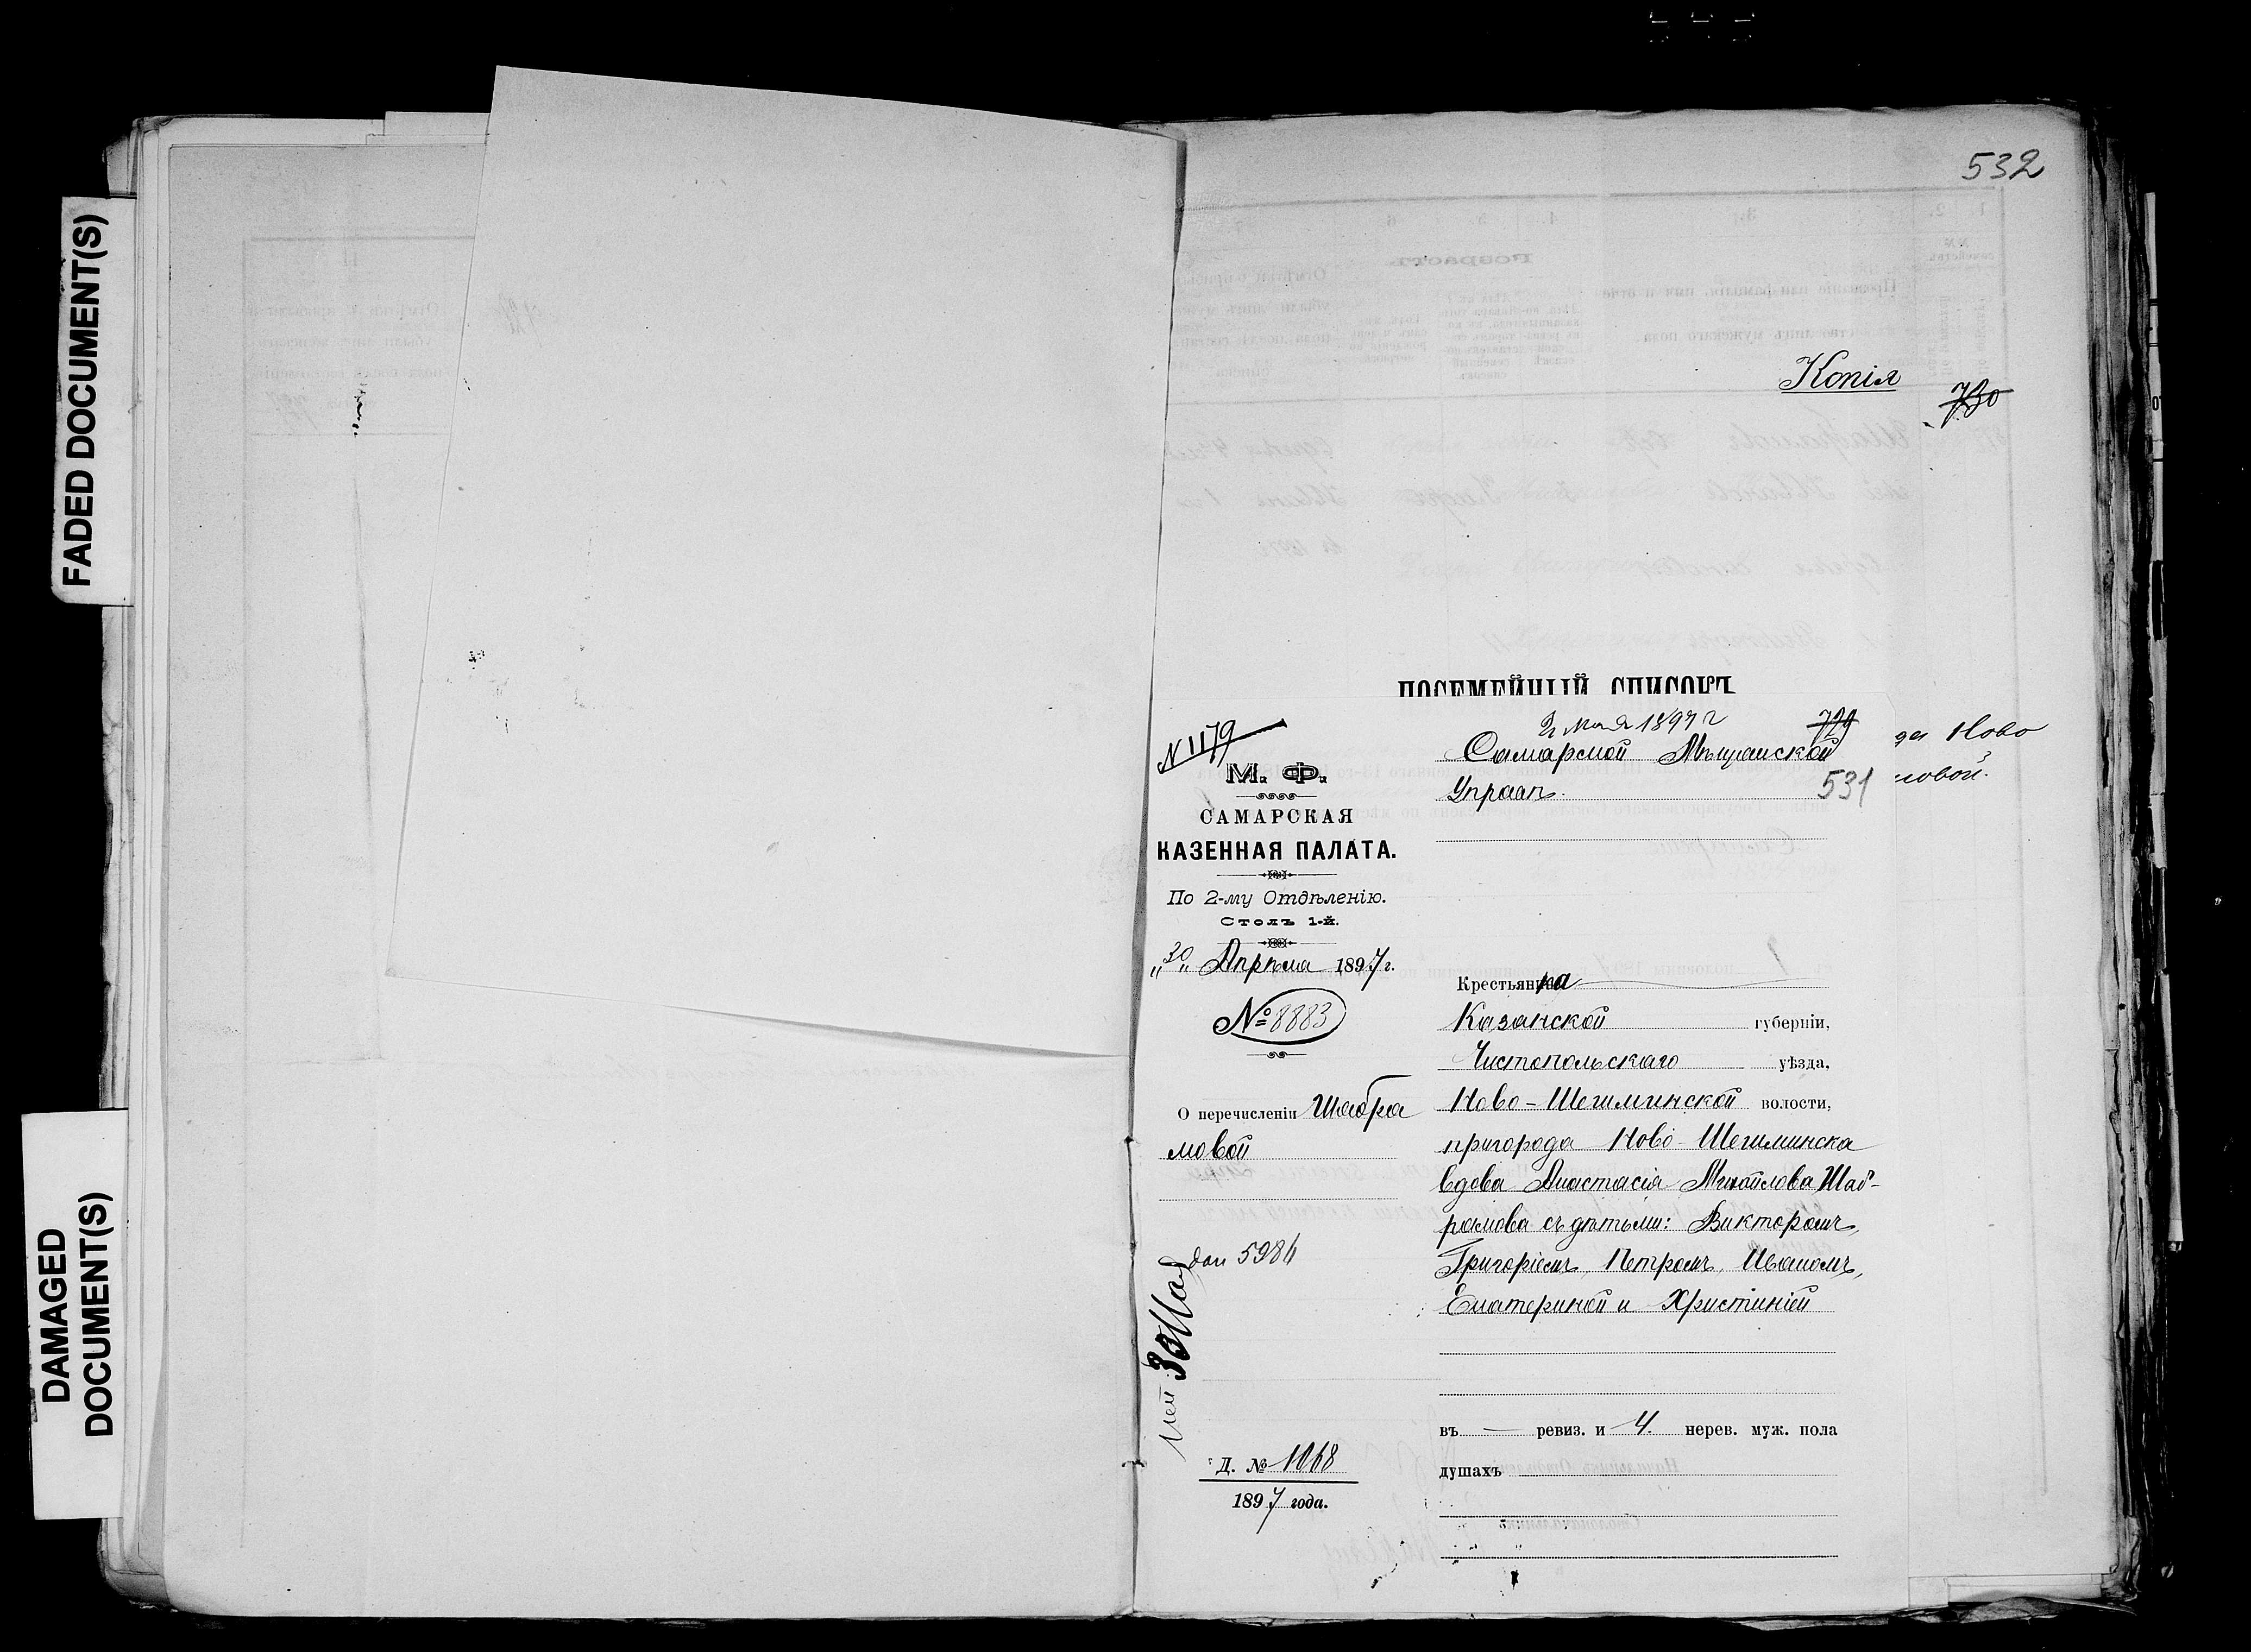 FADED DOCUMENT(S)
DAMAGED
DOCUMENT(S)
532
Копія
730
ПОСЕМЕЙНЫЙ СПИСОКЪ
да Ново
мовой.
N 1179
М. Ф.
САМАРСКАЯ
КАЗЕННАЯ ПАЛАТА.
По 2-му Отдѣленію.
Столъ 1-й.
„30„ Апрѣля 1897 г.
№ 8883
О перечисленіи Шабра
мовой
5984
Д. № 1068
1897 года.
2 мая 1897 г
729
Самарской Мѣщанской
Управѣ.
531
Крестьянка
Казанской губерніи,
Чистопольскаго уѣзда,
Ново-Шешминской волости,
пригорода Ново-Шешминска
вдова Анастасія Михайлова Шаб-
рамова съ дѣтьми: Викторомъ,
Григоріемъ, Петромъ, Иваномъ,
Екатериной и Христиніей
въ — ревиз. и 4. нерев. муж. пола
душахъ